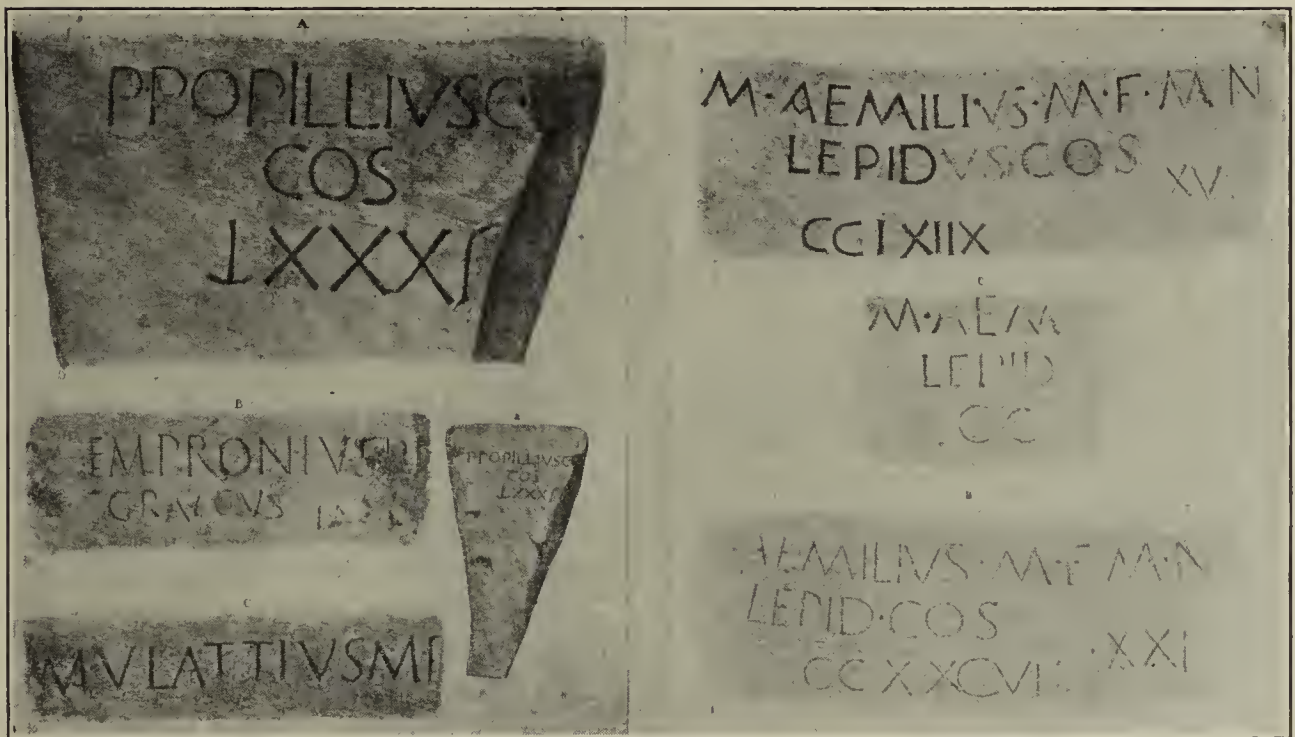 A
P·POPILLIVSC·
COS
⊥XXXI
B
EMPRONIVS
GRACCVS
A
PPOPILLIVSC
COS
⊥XXXI
C
M·VLATTIVSMF
M·AEMILI·VS·M·F·M N
LEPIDVSCOS XV
CCIXIIX
C
M·AEM
LEPID
CC
AEMILIVS·M·F M·N
LEPID·COS
CCXXCVI XXI